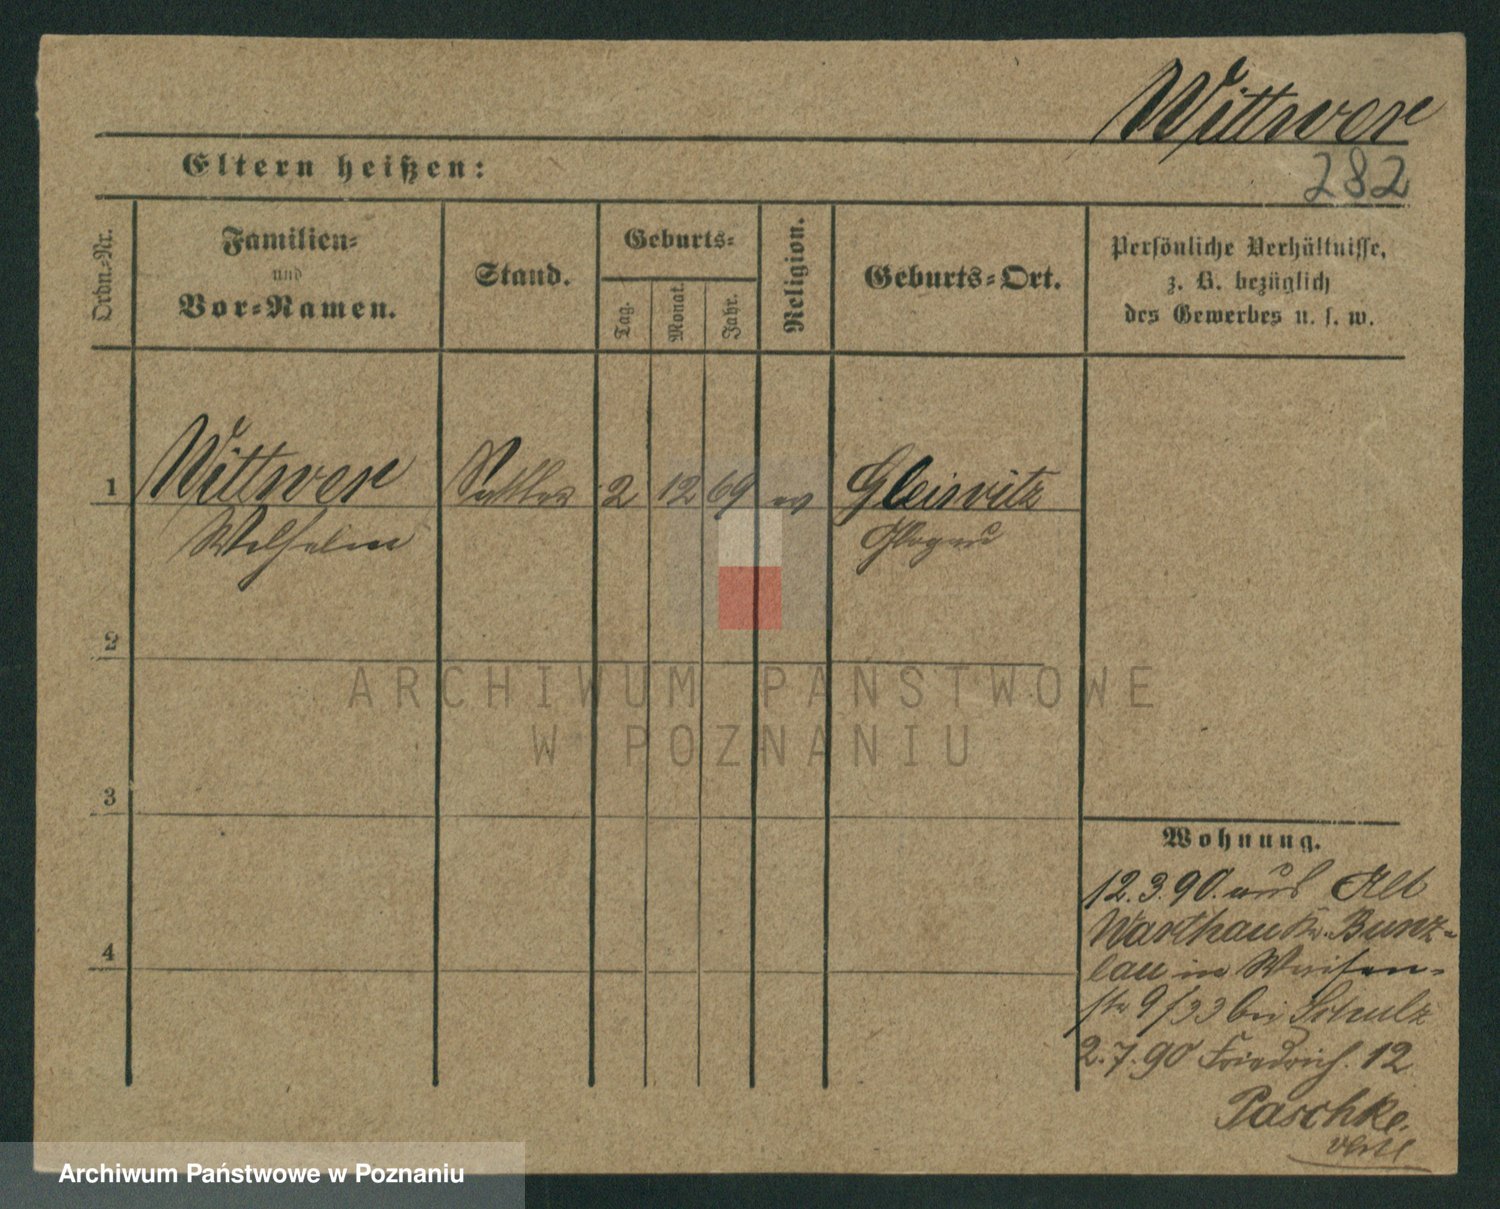 Wittwer
Eltern heißen:
282
Ordn.-Nr.
Familien-
und
Vor-Namen.
Stand.
Geburts-
Tag.
Monat.
Jahr.
Religion.
Geburts-Ort.
Persönliche Verhältnisse,
z. B. bezüglich
des Gewerbes u. s. w.
1 Wittwer Sattler 2 12 69 ev Gleiwitz
Wilhelm Glogau
2
3
4
Wohnung.
12.3.90. aus Alt
Warthau Kr. Bunz-
lau in Waisen-
str 9/33 bei Schulz
2.7.90 Friedrich. 12
Paschke.
ARCHIWUM PAŃSTWOWE
W POZNANIU
Archiwum Państwowe w Poznaniu